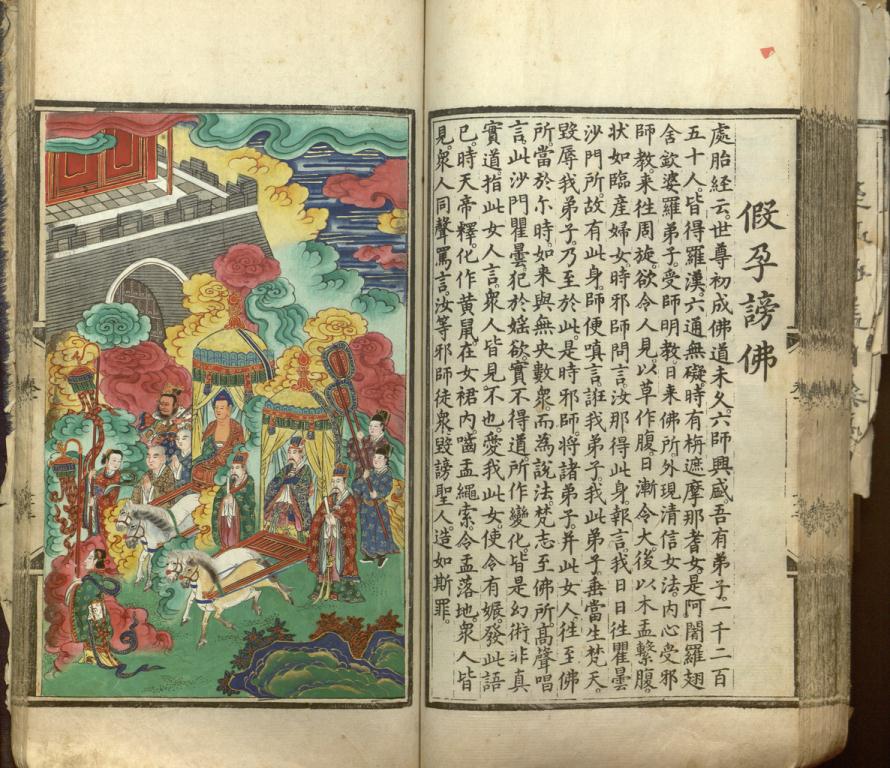 假孕謗佛
處胎經云。世尊初成佛道未久。六師興盛。吾有弟子。一千二百
五十人。皆得羅漢。六通無礙。時有栴遮摩那耆女。是阿闍羅翅
舍欽婆羅弟子。受師明教。日來佛所。外現清信女法。內心受邪
師教。來往周旋。欲令人見。以草作腹。日漸令大。後以木盂繫腹。
狀如臨產婦女。時邪師問言。汝那得此身。報言。我日日往瞿曇
沙門所。故有此身。師便嗔言。誑我弟子。我此弟子。垂當生梵天。
毀辱我弟子。乃至於此。是時邪師。將諸弟子。并此女人。往至佛
所。當於尒時。如來與無央數衆。而為說法。梵志至佛所。高聲唱
言。此沙門瞿曇。犯於婬欲。實不得道。所作變化。皆是幻術。非真
實道。指此女人言。衆人皆見不也。愛我此女。使令有娠。發此語
已。時天帝釋。化作黃鼠。在女裙內。嚙盂繩索。令盂落地。衆人皆
見。衆人同聲罵言。汝等邪師徒衆。毀謗聖人。造如斯罪。